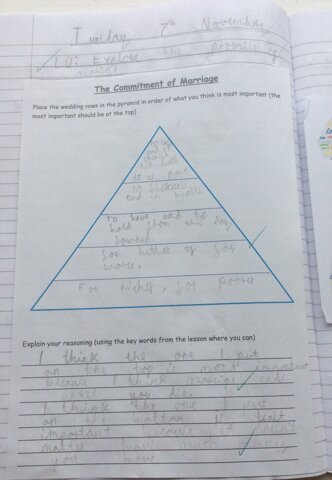 Tuesday 7th November
L.O: Explore the promises of
The Commitment of Marriage
Place the wedding vows in the pyramid in order of what you think is most important (the
most important should be at the top)
To love
and to
cherish
till death
do us part
In sickness
and in health
To have and to
hold from this day
forward
for better or for
worse.
For richer, for poorer
Explain your reasoning (using the key words from the lesson where you can)
I think the one I put
on the top is most important
because I think marriage ends
when you die.
I think the one I put
on the bottom is least
important because it doesn't
matter how much money
you have